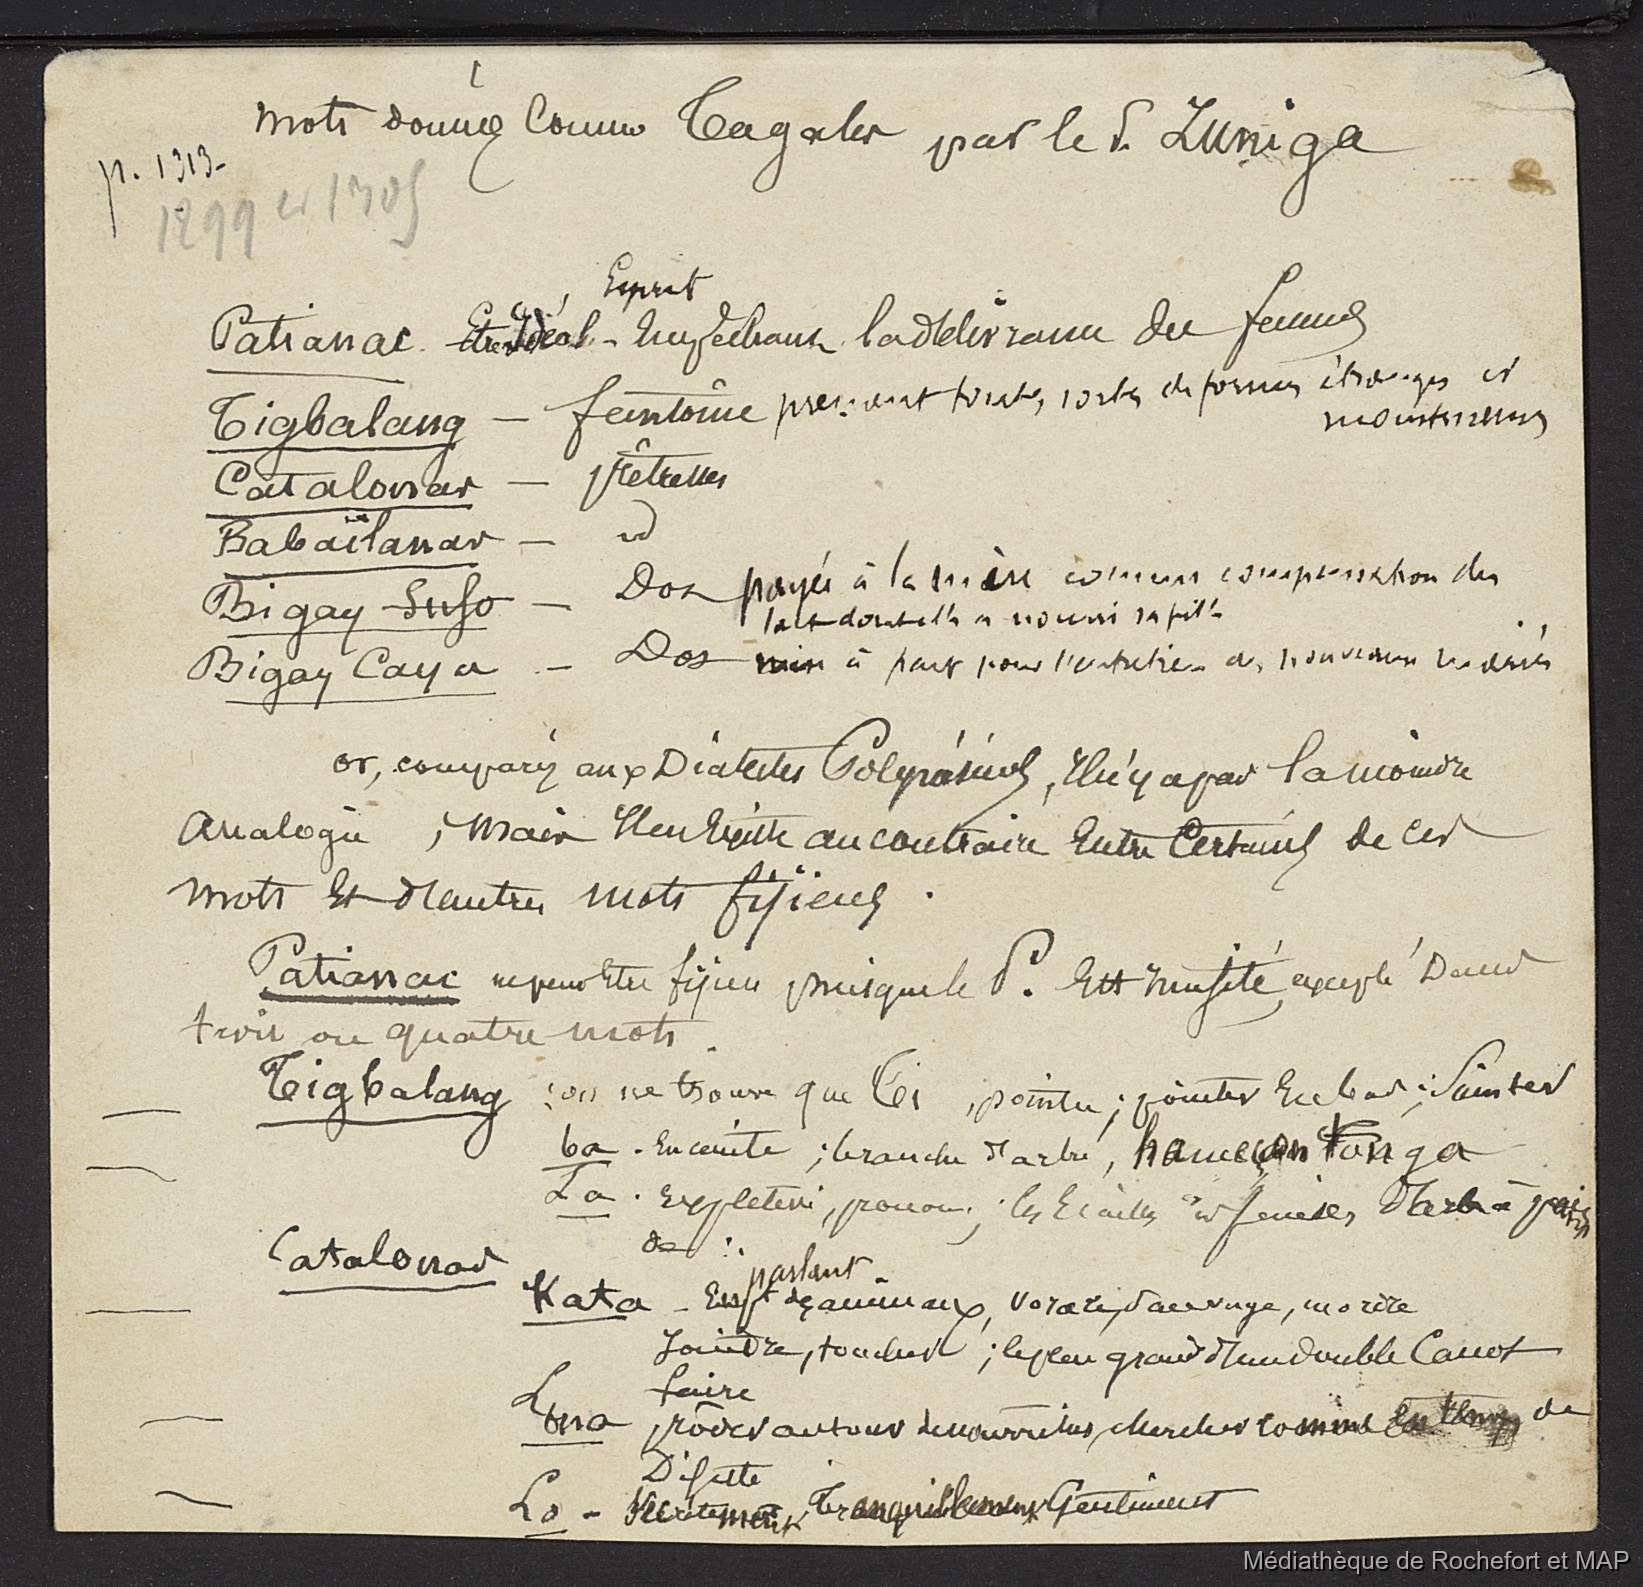 mots donnés comme Tagales par le P. Zuniga
p. 1313-
1299 et 1305
Esprit
Patianac - Empêchant la délivrance des femmes
Tigbalang - fantôme prenant toutes sortes de formes étranges et
monstrueuses
Catalonas - prêtresses
Babaïlanas - id
Bigay Suso - Dot payée à la mère comme compensation du
lait dont elle a nourri sa fille
Bigay Caya - Dot mise à part pour l'entretien des nouveaux mariés
or, comparés aux Dialectes Polynésiens, il n'y a pas la moindre
Analogie ; mais il en existe au contraire entre certains de ces
mots et d'autres mots fijiens.
Patianac ne peut être fijien puisque le P. est inusité, excepté Dans
trois ou quatre mots.
Tigbalang : on ne trouve que Ti , pointu ; pointer en bas ; Sauter
ba - Enceinte ; branche d'arbre, hameçon Tonga
La . explétif, pronom ; les écailles et
de
Catalonas
parlant
Kata - En d'animaux, vorace, sauvage, mordre
Joindre, toucher ; le plus grand d'un double Canot
faire
Lona rôder autour de nourriture, chercher comme en temps de
Disette
Lo - Secrètement, Tranquillement, Gentiment
Médiathèque de Rochefort et MAP